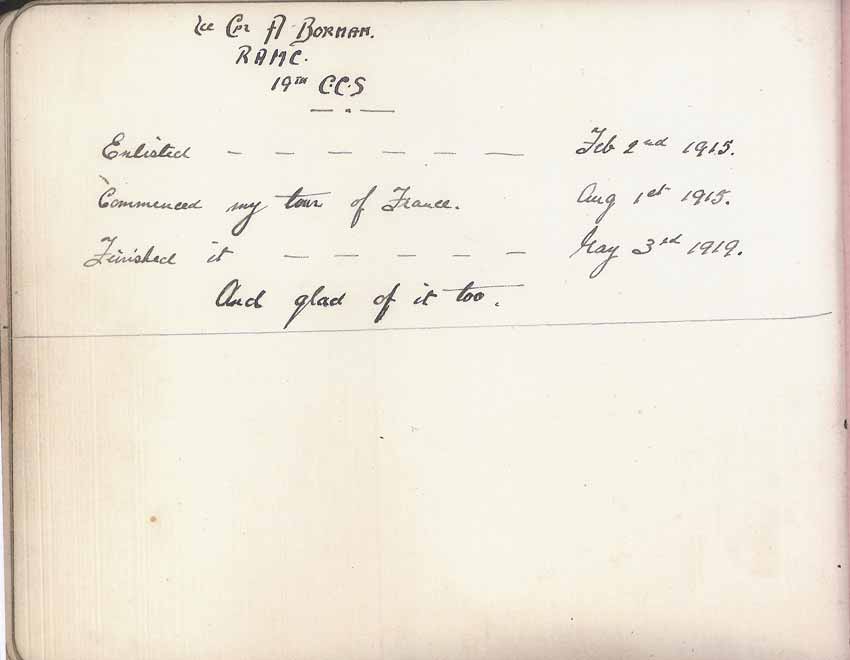 Lce Cpl A Borman.
RAMC.
19TH C.C.S
Enlisted — — — — — — Feb 2nd 1915.
Commenced my tour of France. Aug 1st 1915.
Finished it — — — — — May 3rd 1919.
And glad of it too.